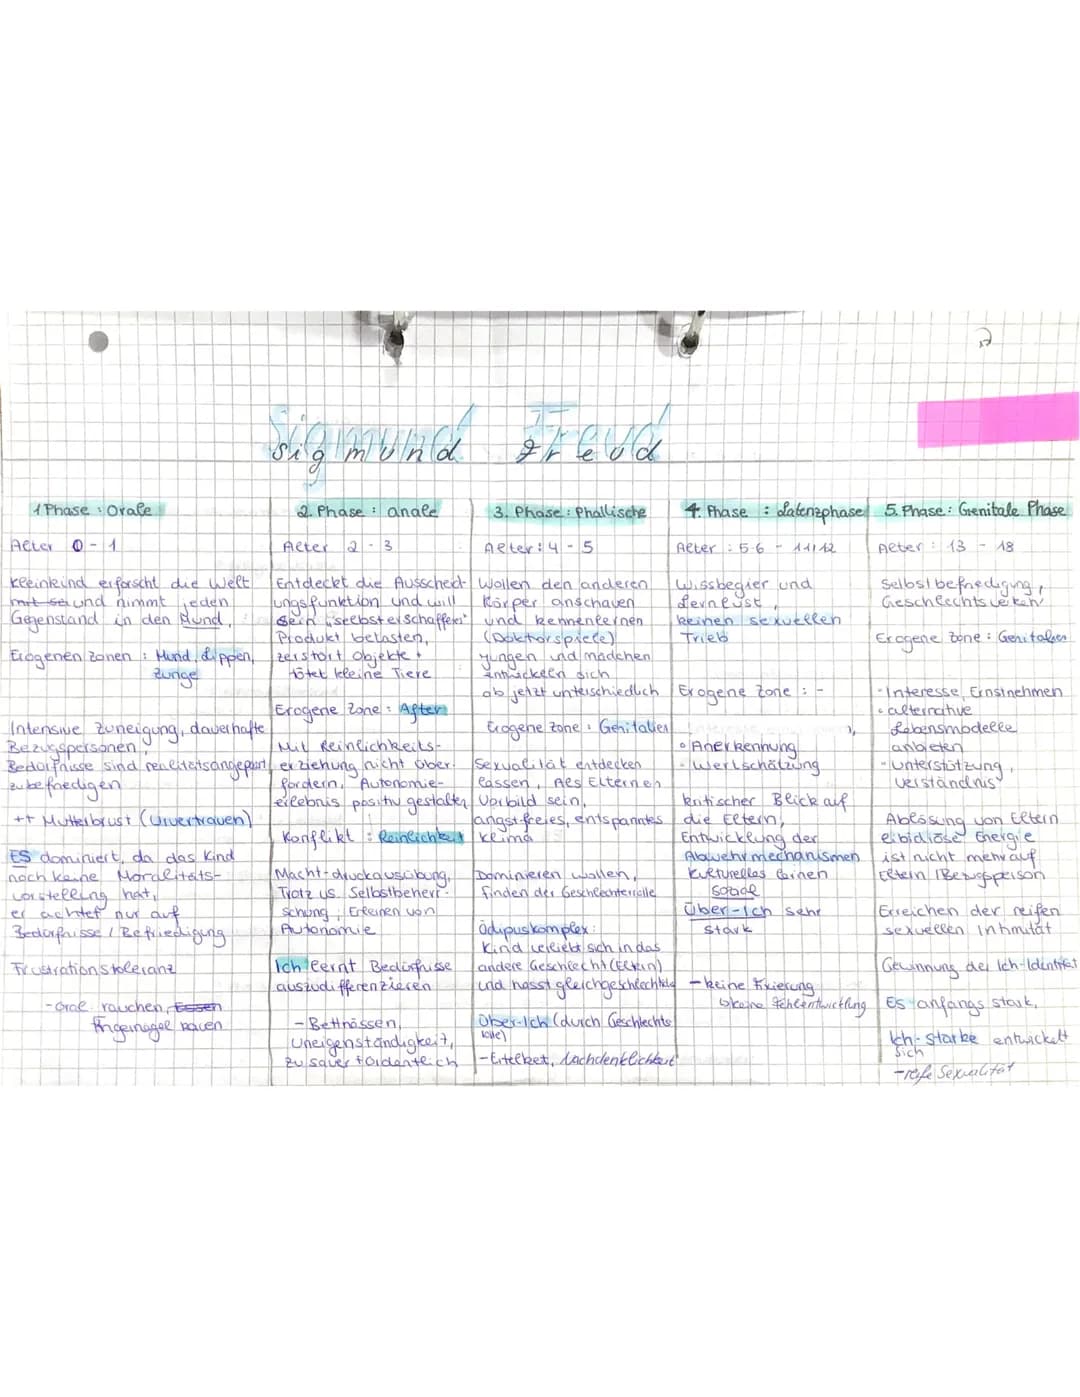 Sigmund Freud
1 Phase : Orale
Alter 0 - 1
Kleinkind erforscht die Welt
mit sei und nimmt jeden
Gegenstand in den Mund,
Erogenen Zonen : Mund, Lippen,
Zunge
Intensive Zuneigung, dauerhafte
Bezugspersonen,
Bedürfnisse sind realitätsangepasst
zu befriedigen
++ Mutterbrust (Urvertrauen)
ES dominiert, da das Kind
noch keine Moralitäts-
vorstellung hat,
er achtet nur auf
Bedürfnisse / Befriedigung
Frustrationstoleranz
- Oral rauchen, Essen
Fingernägel kauen
2. Phase : anale
Alter 2 - 3
Entdeckt die Ausscheid-
ungsfunktion und will
sein "selbsterschaffenes"
Produkt betasten,
zerstört Objekte +
tötet kleine Tiere
Erogene Zone : After
Mit Reinlichkeits-
erziehung nicht über-
fordern, Autonomie-
erlebnis positiv gestalten
Konflikt : Reinlichkeit
Macht-druckausübung,
Trotz vs. Selbstbeherr-
schung, Erlernen von
Autonomie
Ich lernt Bedürfnisse
auszudifferenzieren
- Bettnässen,
Uneigenständigkeit,
zu sauer + ordentlich
3. Phase : Phallische
Alter : 4 - 5
Wollen den anderen
Körper anschauen
und kennenlernen
(Doktorspiele)
Jungen und mädchen
entwickeln sich
ab jetzt unterschiedlich
Erogene Zone : Genitalien
Sexualität entdecken
lassen, Als Elternen
Vorbild sein,
angst-freies, entspanntes
Klima
Dominieren wollen,
finden der Geschlechterrolle
Ödipuskomplex :
Kind verliebt sich in das
andere Geschlecht (Eltern)
und hasst gleichgeschlechtlich
Über-Ich (durch Geschlechts
rolle)
- Eitelkeit, Nachdenklichkeit
4. Phase : Latenzphase
Alter : 5-6 - 11/12
Wissbegier und
Lernlust,
keinen sexuellen
Trieb
Erogene Zone : -
• Anerkennung
- Wertschätzung
kritischer Blick auf
die Eltern,
Entwicklung der
Abwehrmechanismen
kulturelles lernen
soziale
Über-Ich sehr
stark
- keine Fixierung
↳ keine Fehlentwicklung
5. Phase : Genitale Phase
Alter : 13 - 18
Selbstbefriedigung,
Geschlechtsverkehr
Erogene Zone : Genitalien
- Interesse, Ernstnehmen
• alternative
Lebensmodelle
anbieten
- Unterstützung,
Verständnis
Ablösung von Eltern
libidiöse Energie
ist nicht mehr auf
Eltern / Bezugsperson
Erreichen der reifen
sexuellen Intimität
Gewinnung der Ich-Identität
Es anfangs stark,
Ich-Stärke entwickelt
sich
- reife Sexualität